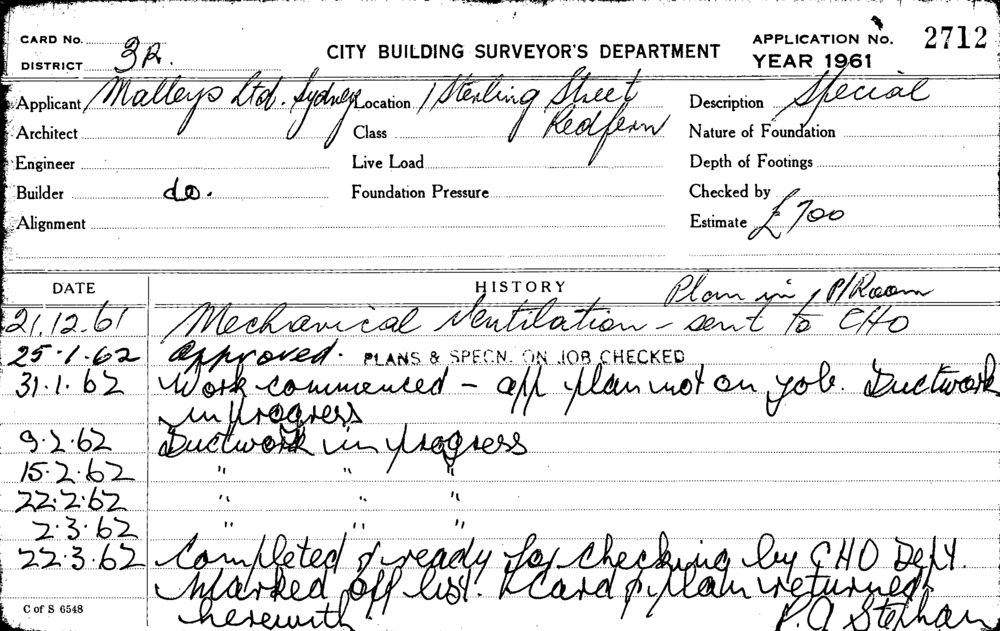 CARD No. APPLICATION No. 2712
DISTRICT 3R. CITY BUILDING SURVEYOR'S DEPARTMENT YEAR 1961
Applicant Malleys Ltd. Sydney Location 1 Sterling Street Description Special
Architect Class Redfern Nature of Foundation
Engineer Live Load Depth of Footings
Builder do. Foundation Pressure Checked by
Alignment Estimate £700
DATE HISTORY Plan in P/Room
21.12.61 Mechanical Ventilation - sent to CHO
25.1.62 Approved. PLANS & SPECN. ON JOB CHECKED
31.1.62 Work commenced - app plan not on job. Ductwork
in progress
9.2.62 Ductwork in progress
15.2.62 " " "
22.2.62 " " "
2.3.62 " " "
22.3.62 Completed & ready for checking by CHO Dept.
Marked off list. Card & plan returned
herewith P.A Stephan
C of S 6548